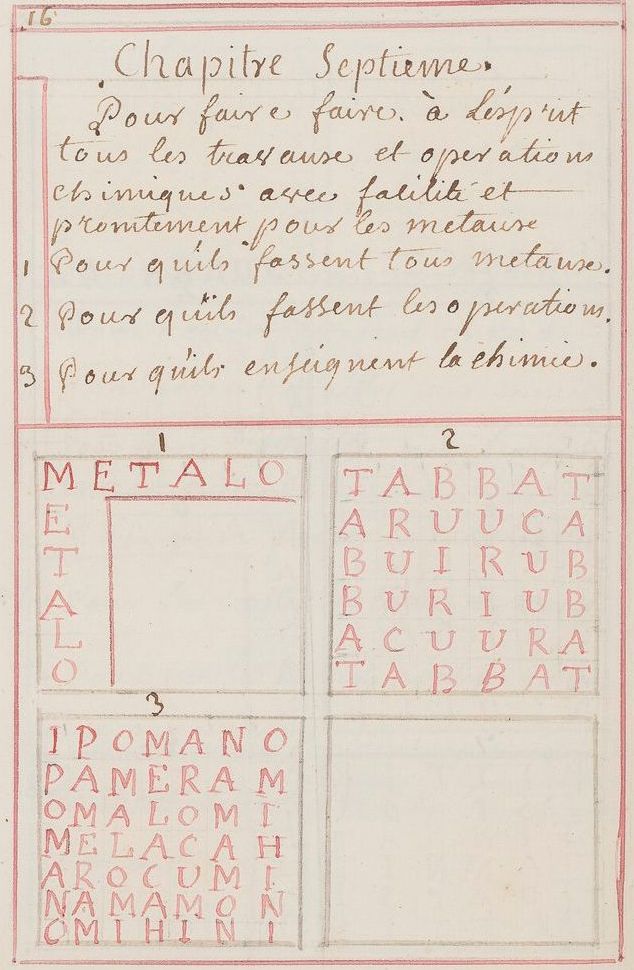 16
Chapitre Septieme.
Pour faire faire. à L'ésprit
tous les travause et operations
chimiques avec facilité et
promtement pour les metause
1 Pour qu'ils fassent tous metause.
2 Pour qu'ils fassent les operations.
3 Pour qu'ils enseignent la chimie.
1
METALO
E
T
A
L
O
2
TABBAT
ARUUCA
BUIRUB
BURIUB
ACUURA
TABBAT
3
IPOMANO
PAMERAM
OMALOMI
MELACAH
AROCUMI
NAMAMON
OMIHINI